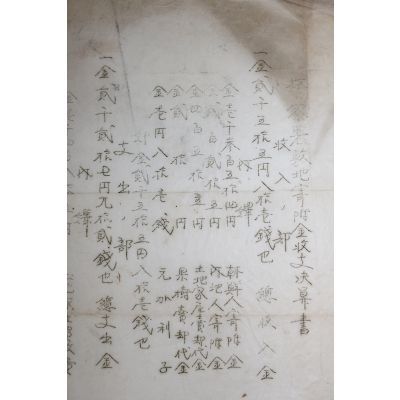 敷地寄附金收支決算書
收入ノ部
一金貳千五拾五円八拾壱錢也 總收入金
內譯
金壱千参百五拾四円 朝鮮人寄附金
內地人寄附金
金四百五拾円 土地家屋賣却代金
金貳拾円 果樹賣却代金
金壱円八拾壱錢 元加利子
計金貳千五拾五円八拾壱錢也
支出ノ部
一金貳千貳拾七円九拾貳錢也 總支出金
內譯